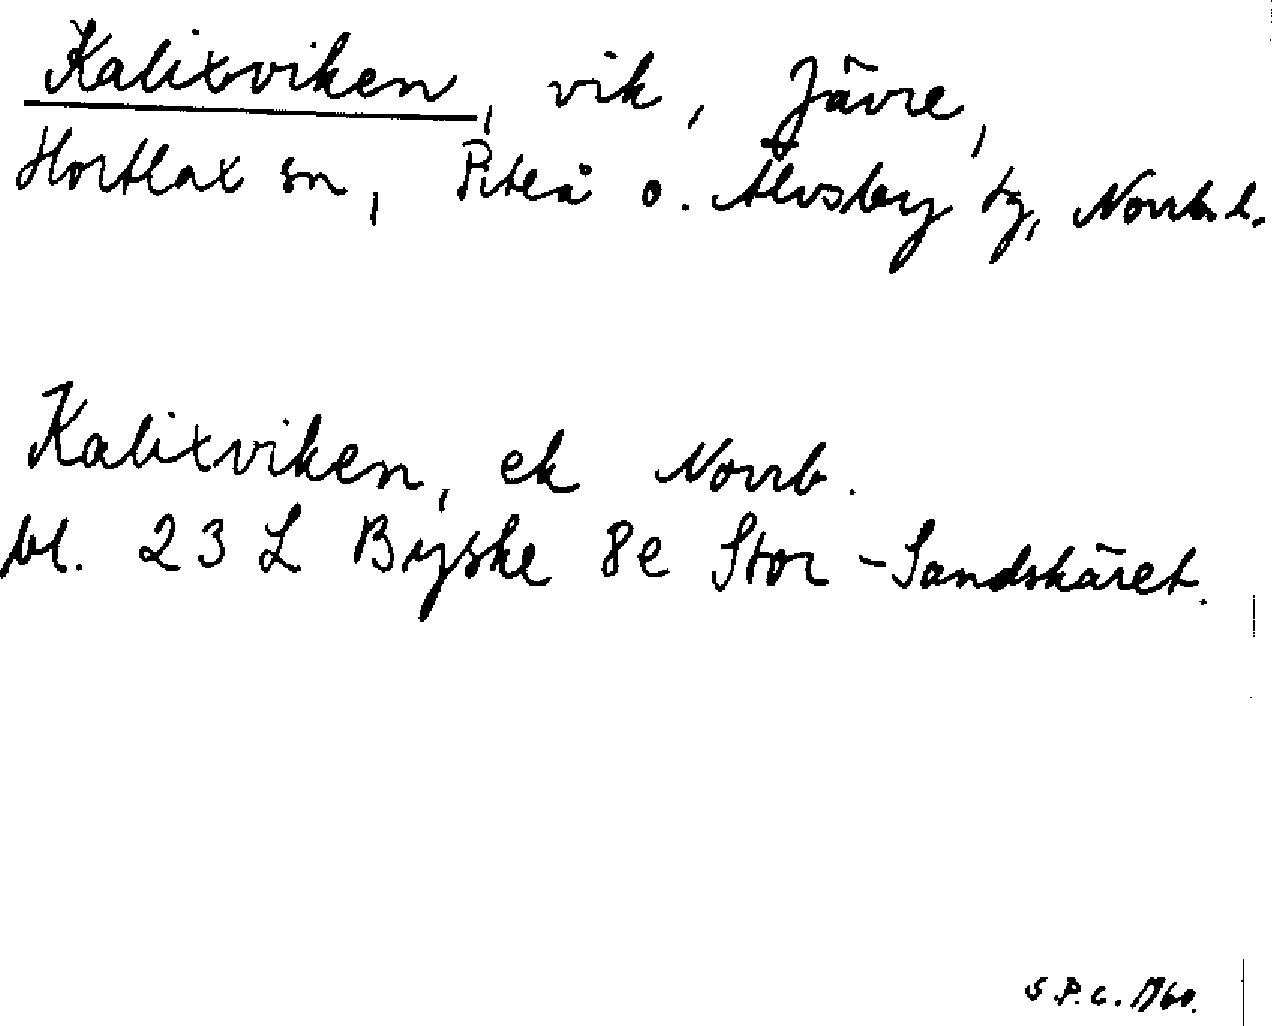 Kalixviken, vik, Jävre,
Hortlax sn, Piteå o. Älvsby tg, Norrb. l.
Kalixviken, ek Norrb.
bl. 23 L Byske 8e Stor-Sandskäret.
S.P.C. 1960.